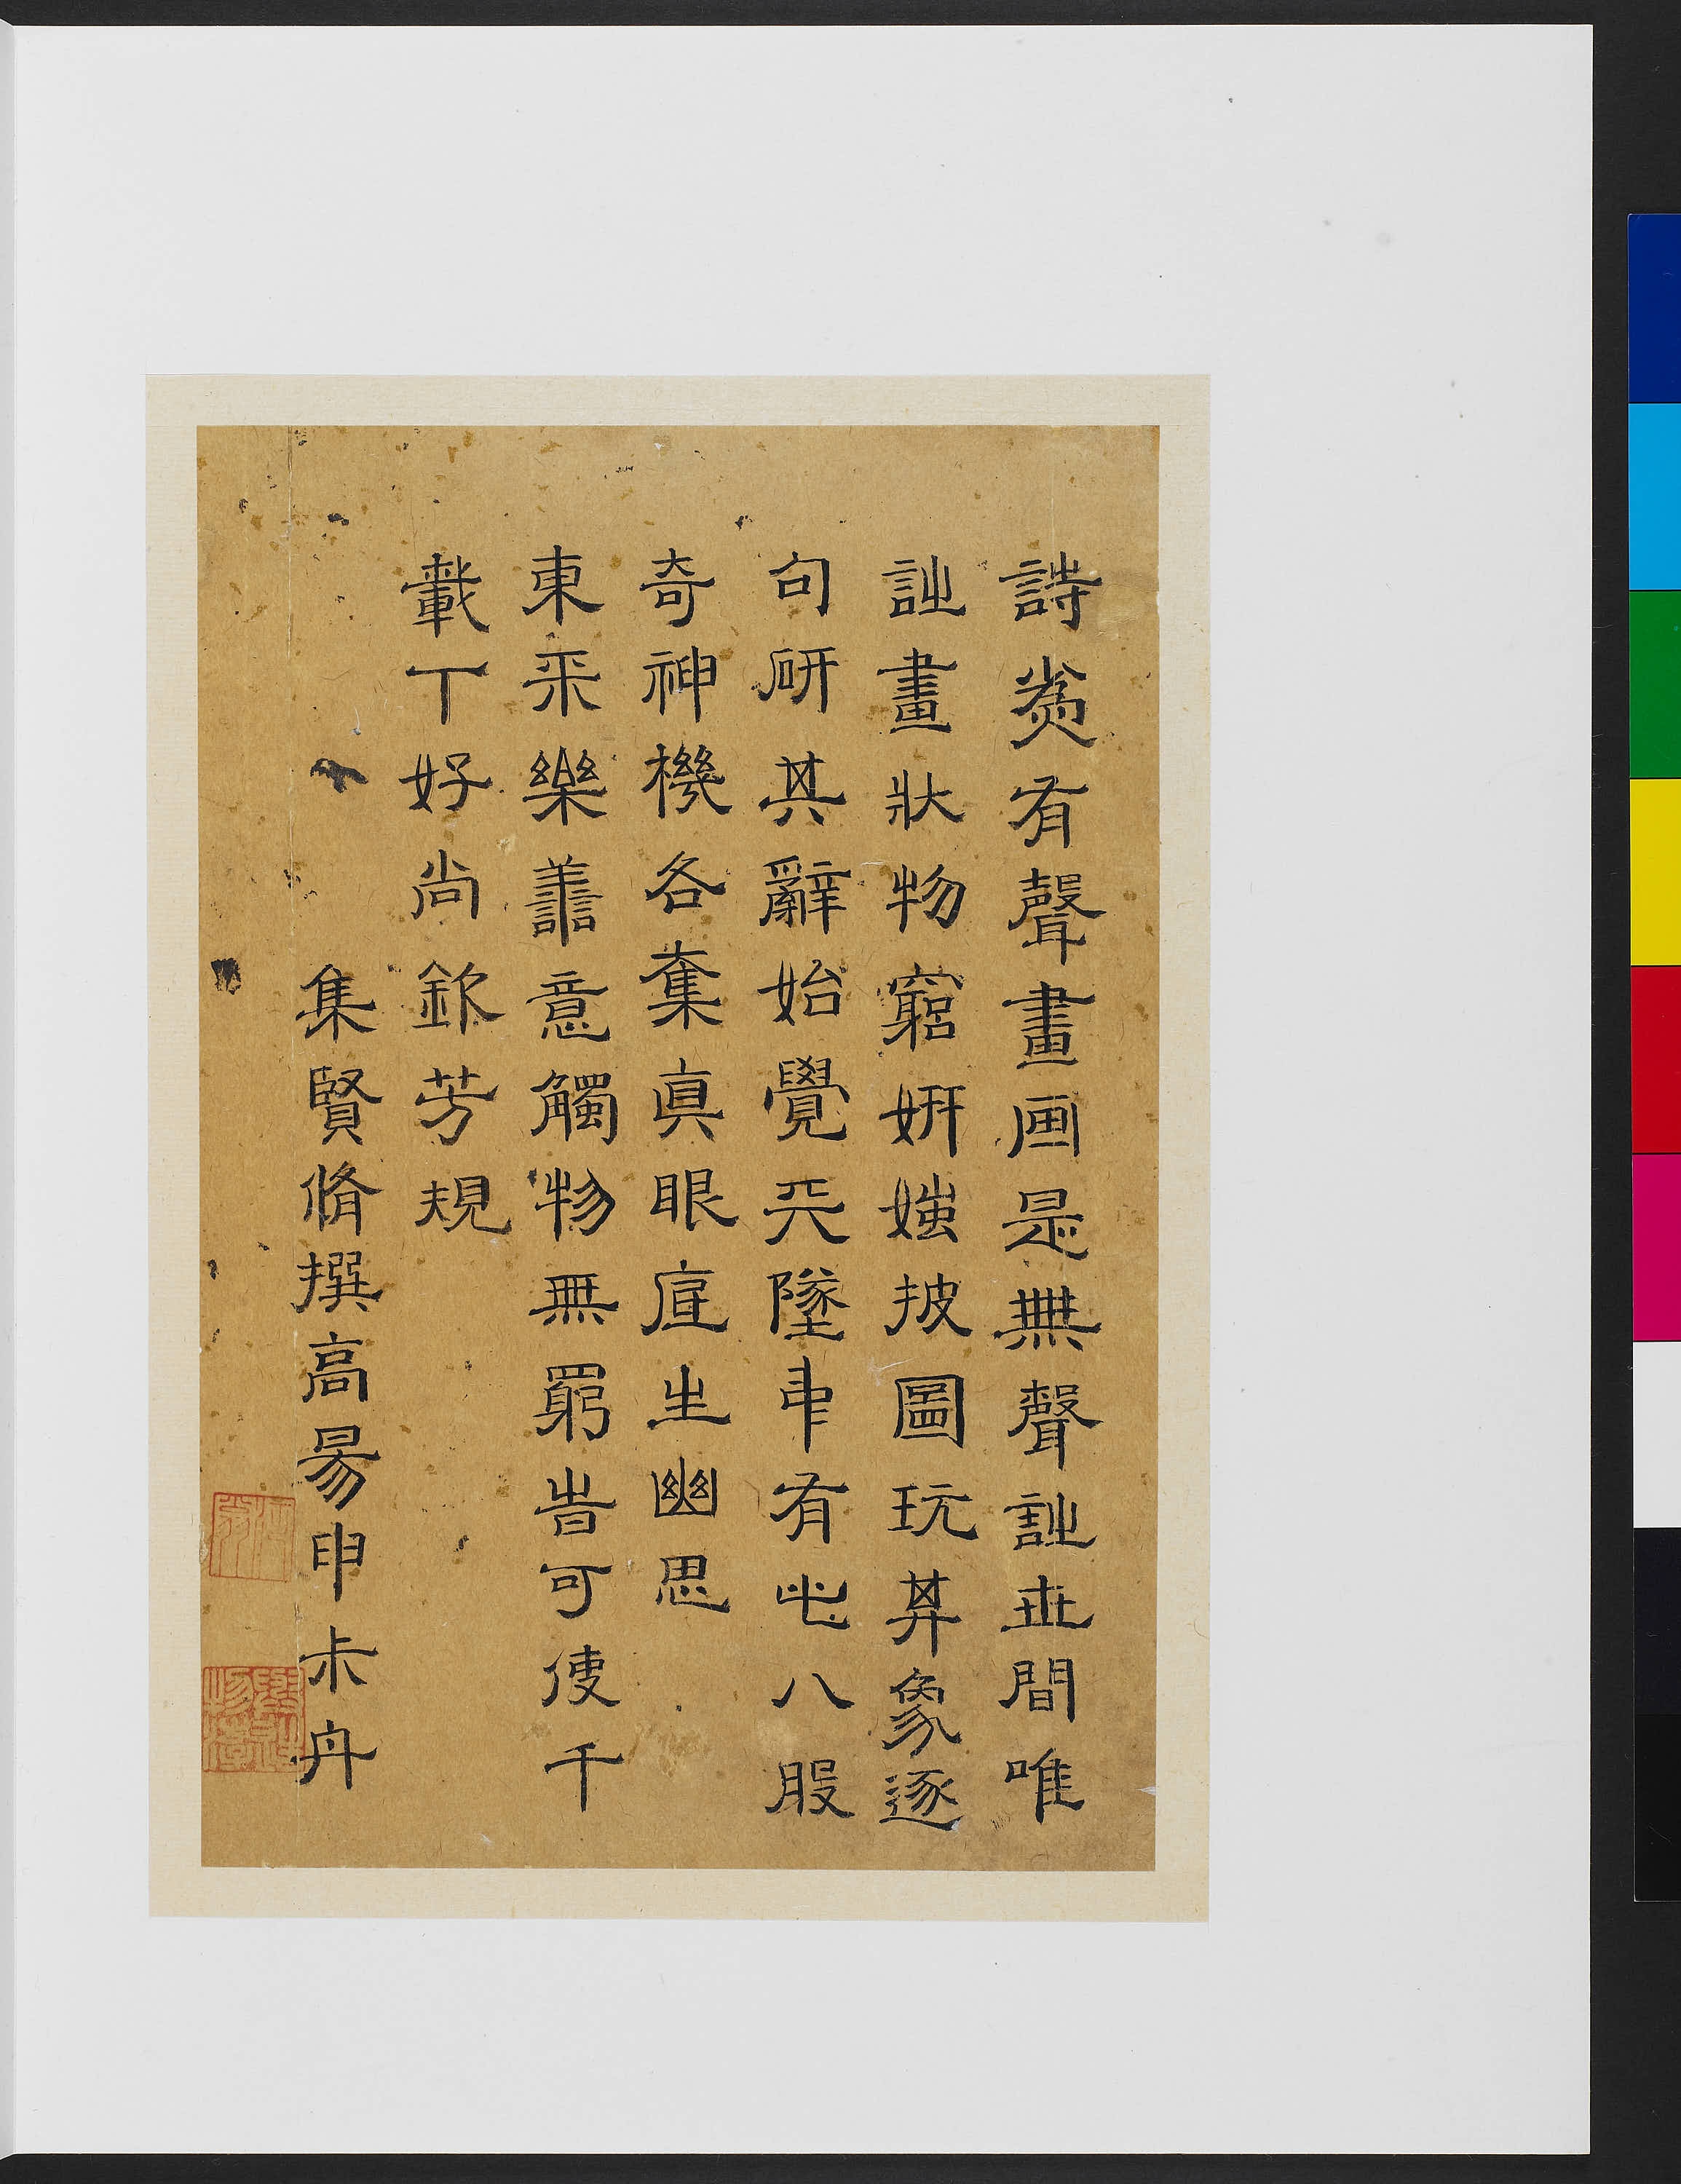 詩爲有聲畫画是無聲詩世間唯
詩畫狀物窮妍媸披圖玩其象逐
句研其辭始覺天墜中有此八段
奇神機各奪眞眼底生幽思
東平樂善意觸物無窮皆可使千
載下好尚欽芳規
集賢脩撰高昜申屠